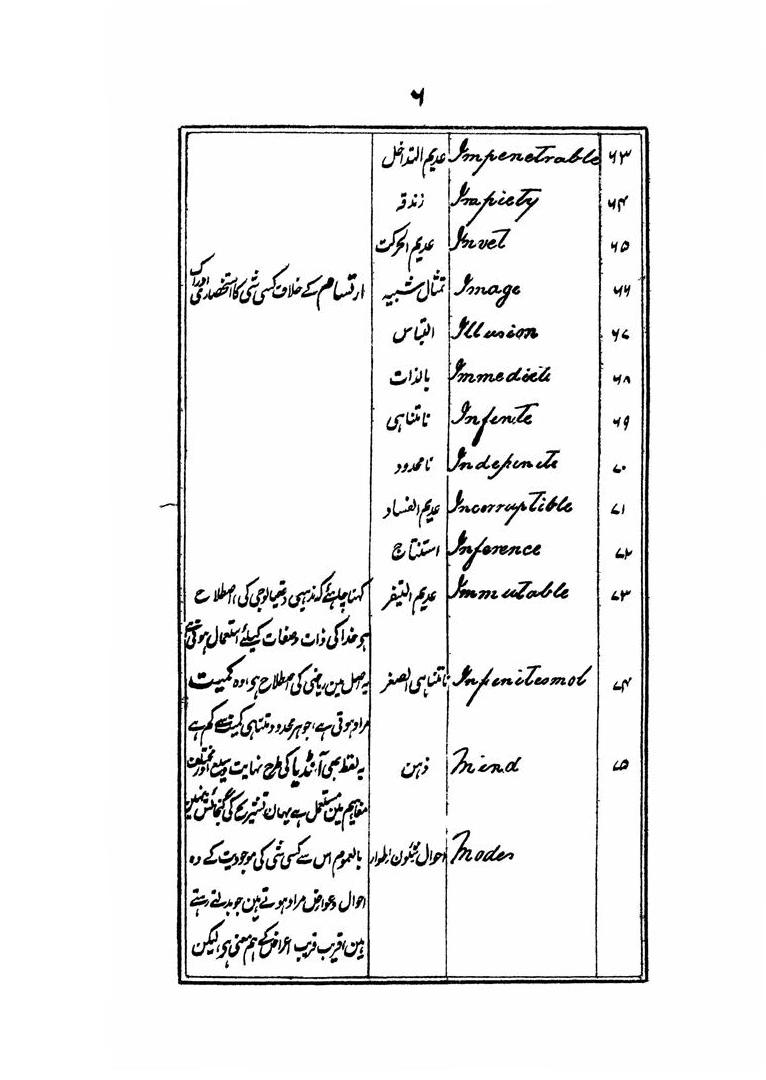 ۶
۶۳ Impenetrable عدیم التداخل
۶۴ Impiety زندقہ
۶۵ Invet عدیم الحرکت
۶۶ Image تمثال شبیہ ارتسام کے خلاف کسی شی کا استحضاری ادراک
۶۷ Illusion التباس
۶۸ Immediete بالذات
۶۹ Infenite نامتناہی
۷۰ Indepenite نامحدود
۷۱ Incorruptible عدیم الفساد
۷۲ Inference استنتاج
۷۳ Immutable عدیم التیغر کہنا چاہئے کہ مذہبی و تھیالوجی کی، اصطلاح
ہو خدا کی ذات و صفات کیلئے استعمال ہوتی ہے
۷۴ Inpenitesmol نامتناہی الصغر یہ اصل مین ریاضی کی اصطلاح ہو، وہ کمیت
مراد ہوتی ہے، جو ہر محدود و متناہی کمیت سے کم ہے
۷۵ Mind ذہن یہ لفظ بھی آئیڈیا کی طرح نہایت وسیع اور مختلف
مفاہیم مین مستعمل ہے یہان تشریح کی گنجائش نہین
Modes احوال شئون اطوار بالعموم اس سے کسی شی کی موجودیت کے وہ
احوال و عوارض مراد ہوتے ہین جو بدلتے رہتے
ہین، قریب قریب اعراض کے ہم معنی ہو، لیکن